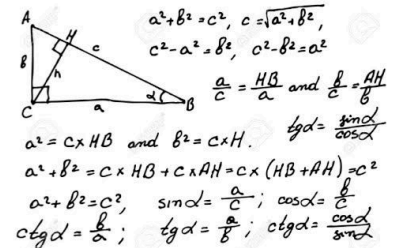 A
H
c
b
h
C
a
α
B
a²+b²=c², c=√a²+b²,
c²-a²=b², c²-b²=a²
a/c = HB/a and b/c = AH/b
tgα = sinα/cosα
a²=c×HB and b²=c×H.
a²+b²=c×HB+c×AH=c×(HB+AH)=c²
a²+b²=c², sinα=a/c; cosα=b/c
ctgα=b/a; tgα=a/b; ctgα=cosα/sinα